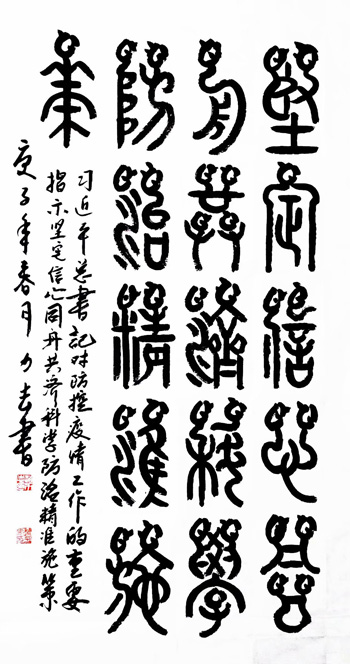 堅定信心同
舟共濟科學
防治精準施
策
习近平总書記对防控疫情工作的重要
指示坚定信心同舟共济科学防治精准施策
庚子年春月書